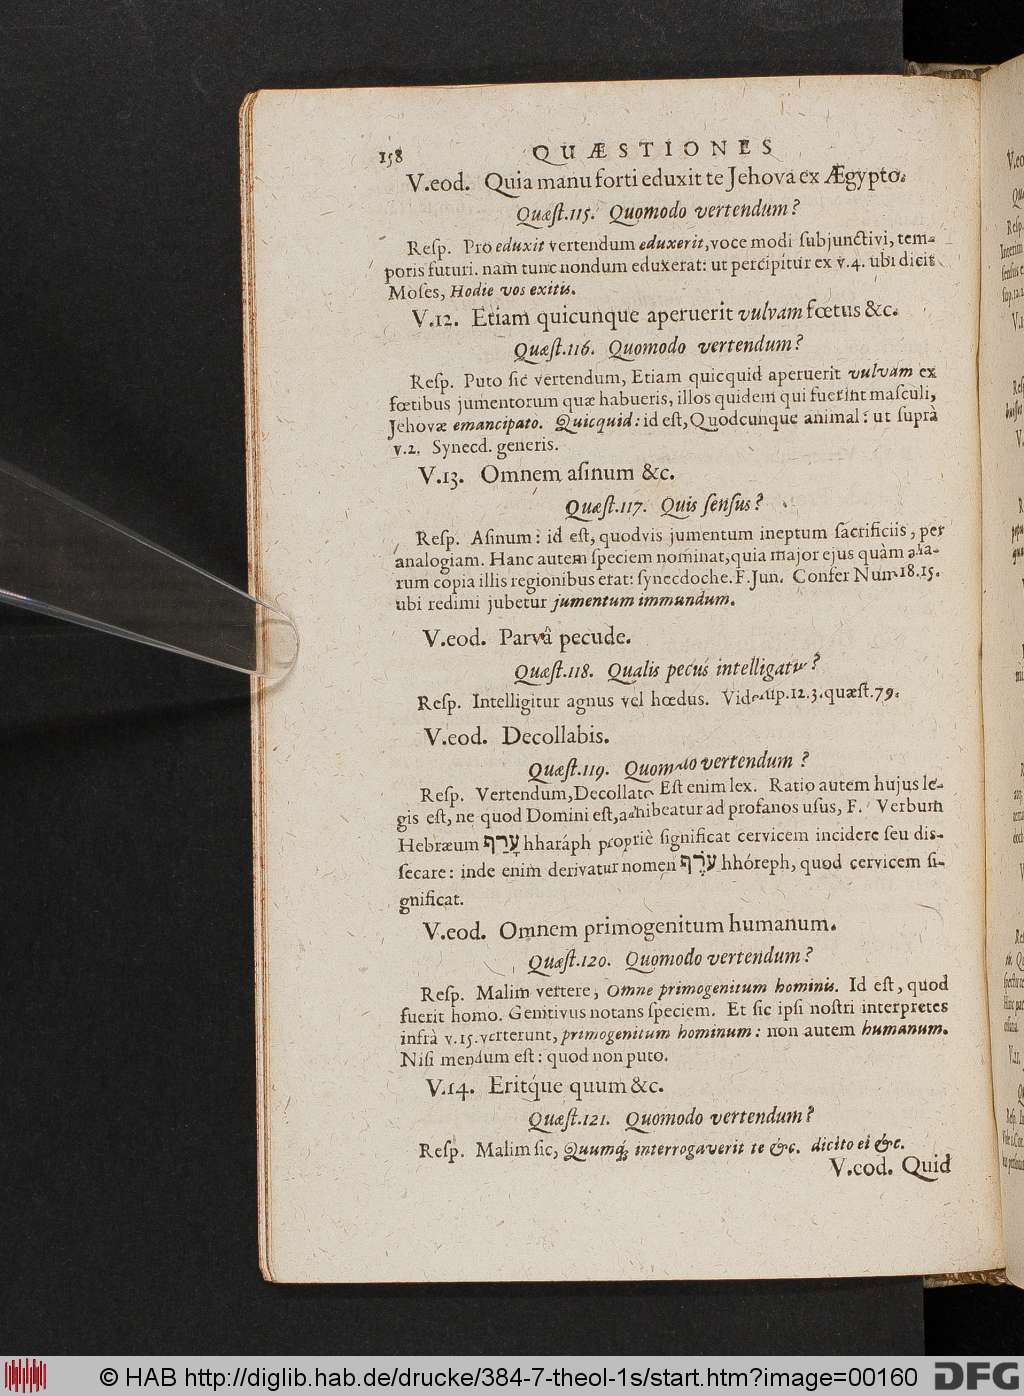 158 QUÆSTIONES
V.eod. Quia manu forti eduxit te Jehova ex Ægypto.
Quæſt.115. Quomodo vertendum?
Reſp. Pro eduxit vertendum eduxerit, voce modi ſubjunctivi, tem-
poris futuri. nam tunc nondum eduxerat: ut percipitur ex v.4. ubi dicit
Moſes, Hodie vos exitis.
V.12. Etiam quicunque aperuerit vulvam fœtus &c.
Quæſt.116. Quomodo vertendum?
Reſp. Puto ſic vertendum, Etiam quicquid aperuerit vulvam ex
fœtibus jumentorum quæ habueris, illos quidem qui fuerint maſculi,
Jehovæ emancipato. Quicquid: id eſt, Quodcunque animal: ut ſuprà
v.2. Synecd. generis.
V.13. Omnem aſinum &c.
Quæſt.117. Quis ſenſus?
Reſp. Aſinum: id eſt, quodvis jumentum ineptum ſacrificiis, per
analogiam. Hanc autem ſpeciem nominat, quia major ejus quàm alia-
rum copia illis regionibus erat: ſynecdoche. F. Jun. Confer Num.18.15.
ubi redimi jubetur jumentum immundum.
V.eod. Parvâ pecude.
Quæſt.118. Qualis pecus intelligatur?
Reſp. Intelligitur agnus vel hœdus. Vide ſup.12.3.quæſt.79.
V.eod. Decollabis.
Quæſt.119. Quomodo vertendum?
Reſp. Vertendum, Decollato. Eſt enim lex. Ratio autem hujus le-
gis eſt, ne quod Domini eſt, adhibeatur ad profanos uſus, F. Verbum
Hebræum עָרַף hharáph propriè ſignificat cervicem incidere ſeu diſ-
ſecare: inde enim derivatur nomen עֹרֶף hhóreph, quod cervicem ſi-
gnificat.
V.eod. Omnem primogenitum humanum.
Quæſt.120. Quomodo vertendum?
Reſp. Malim vertere, Omne primogenitum hominis. Id eſt, quod
fuerit homo. Genitivus notans ſpeciem. Et ſic ipſi noſtri interpretes
infrà v.15. verterunt, primogenitum hominum: non autem humanum.
Niſi mendum eſt: quod non puto.
V.14. Eritque quum &c.
Quæſt.121. Quomodo vertendum?
Reſp. Malim ſic, Quumq; interrogaverit te &c. dicito ei &c.
V.eod. Quid
© HAB http://diglib.hab.de/drucke/384-7-theol-1s/start.htm?image=00160
DFG